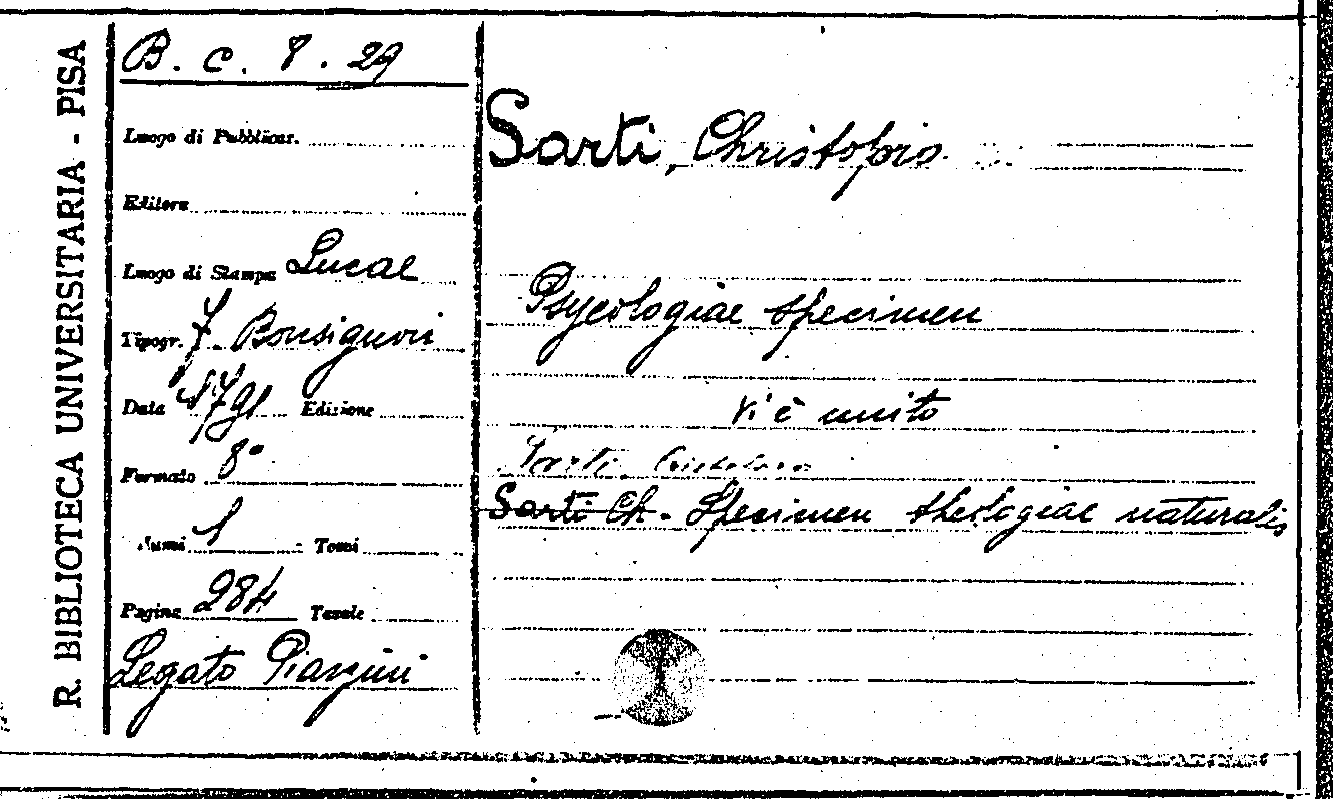 R. BIBLIOTECA UNIVERSITARIA - PISA
B. c. 8. 29
Luogo di Pubblicaz.
Editore
Luogo di Stampa Lucae
Tipogr. F. Bonsignori
Data 1791 Edizione
Formato 8°
Numi 1 Tomi
Pagine 284 Tavole
Legato Piazzini
Sarti, Christophis
Psycologiae specimen
Vi è unito
Sarti, Cristoforo
Sarti Ch. - Specimen theologiae naturalis